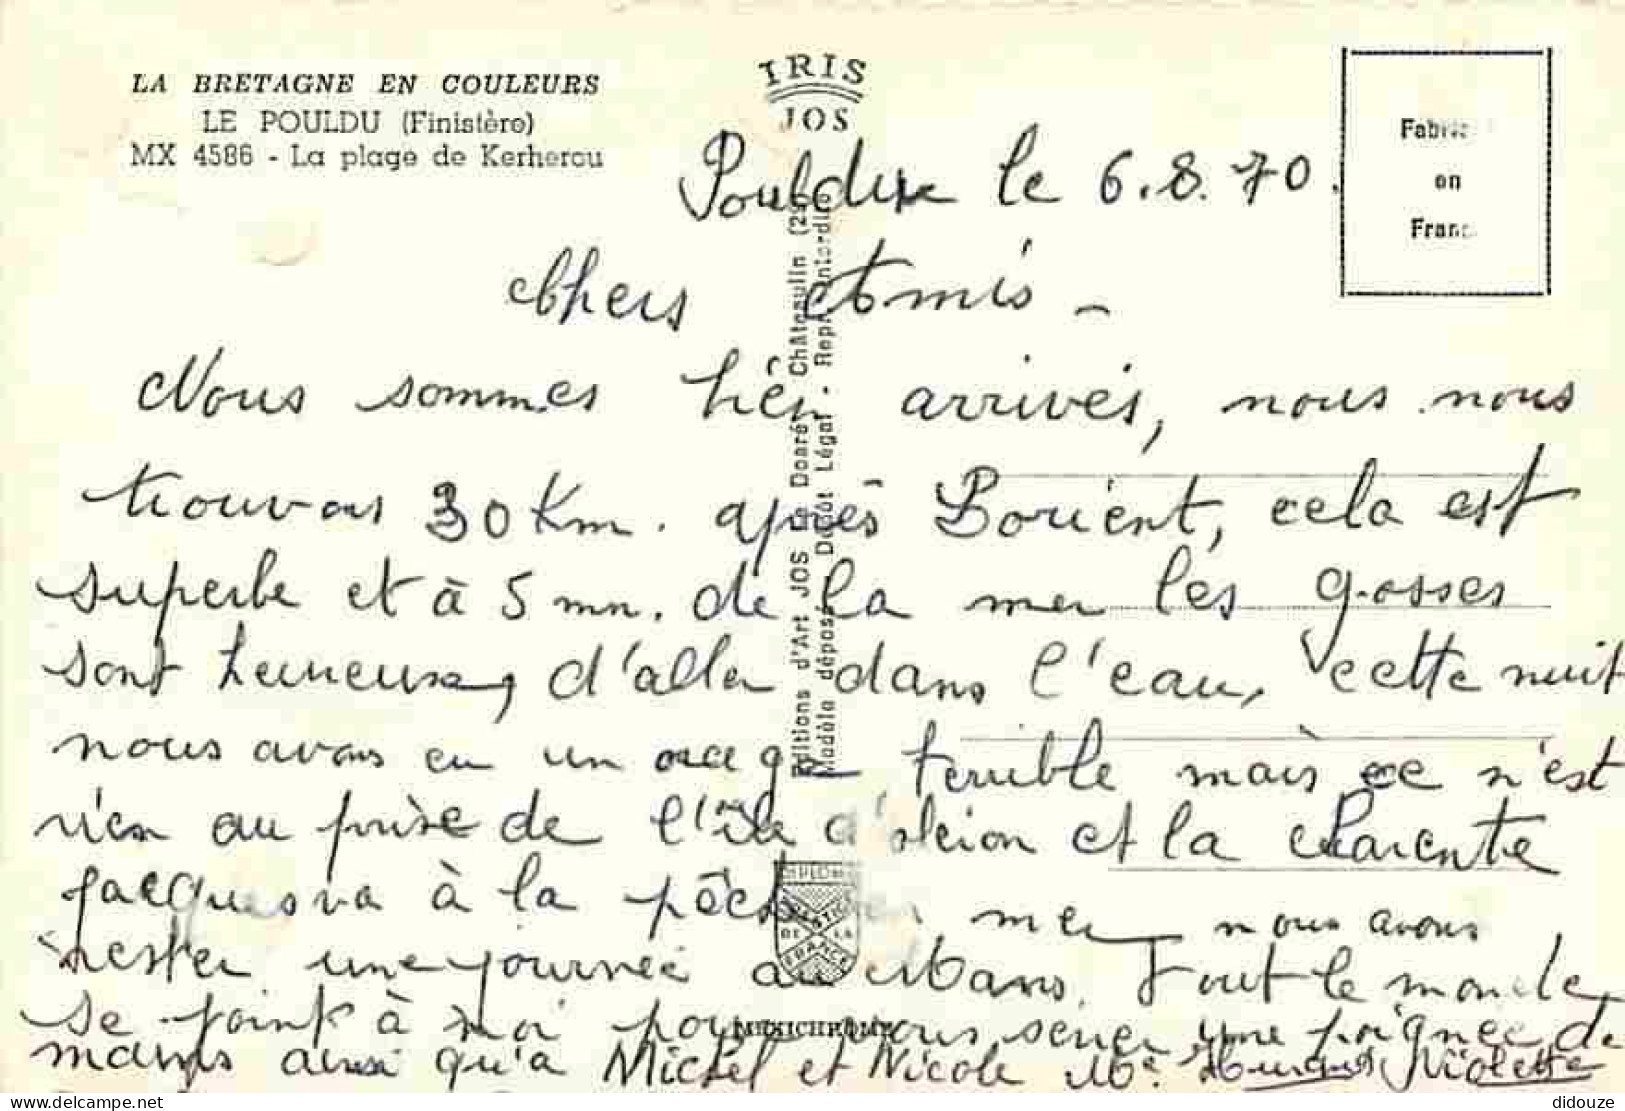 LA BRETAGNE EN COULEURS
LE POULDU (Finistère)
MX 4586 - La plage de Kerherou
IRIS
JOS
en
Pouldu le 6.8.70.
Chers Amis -
Nous sommes bien arrivés, nous nous
trouvons 30 Km. après Lorient, cela est
superbe et à 5 mn. de la mer les gosses
sont heureux, d'aller dans l'eau, cette nuit
nous avons eu un orage terrible mais ce n'est
rien au prise de l'île d'oleron et la Charente
Jacques va à la pêche en mer, nous avons
rester une journée au Mans. Tout le monde
se joint à moi pour vous serrer une poignée de
mains ainsi qu'a Michel et Nicole Me. Violette
Editions d'Art JOS Le Doaré Châteaulin
Modèle déposé Dépôt Légal - Repr. Interdite
DE LA
FRANCE
MEXICHROME
didouze